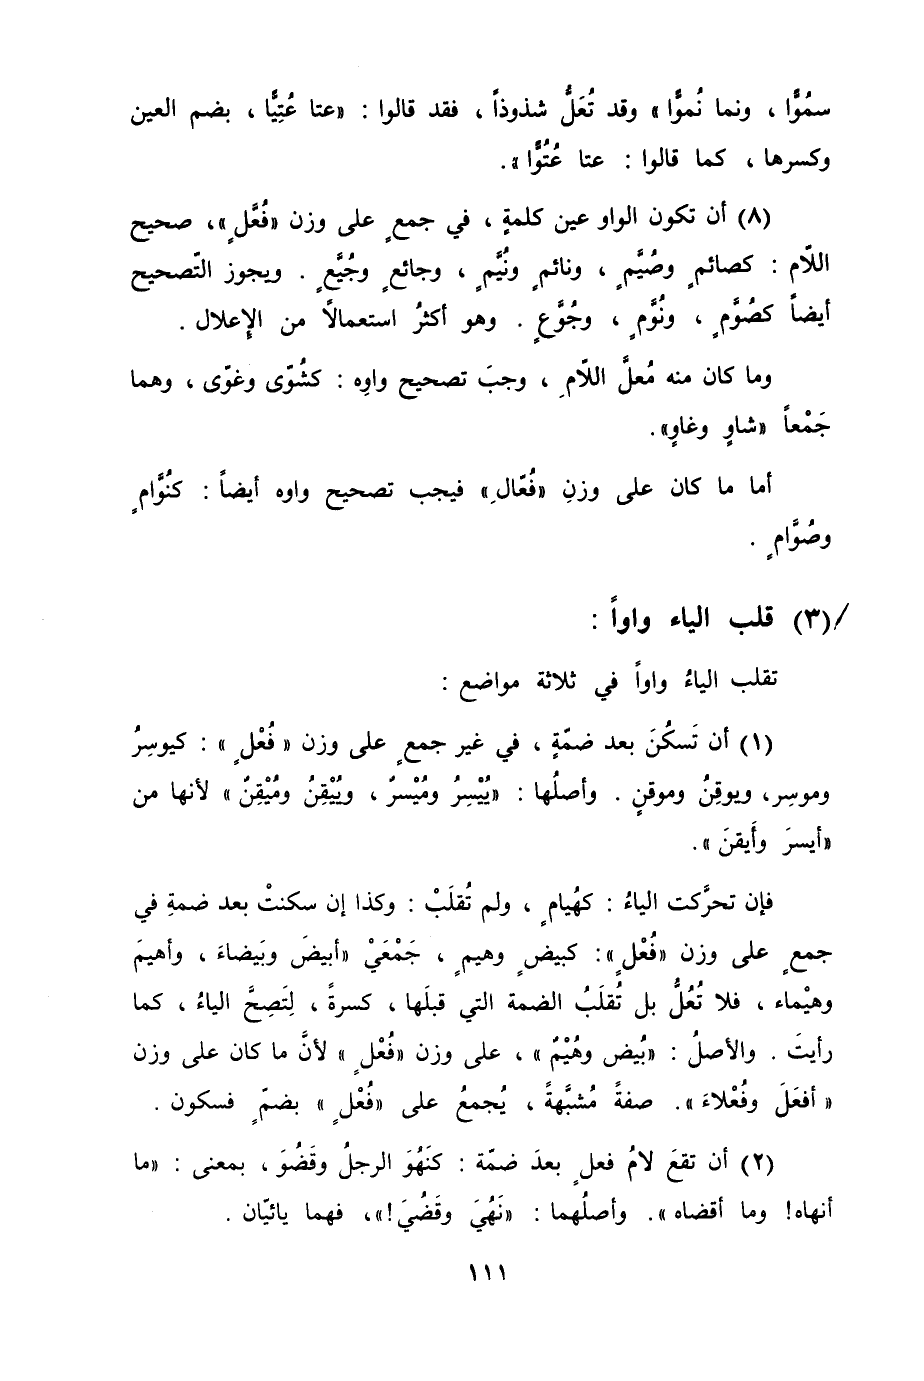 سمُوًّا ، ونما نُموًّا » وقد تُعَلُّ شذوذاً ، فقد قالوا : «عتا عُتِيًّا ، بضم العين
وكسرها ، كما قالوا : عتا عُتُوًّا ».
(٨) أن تكون الواو عين كلمةٍ ، في جمعٍ على وزن «فُعَّلٍ»، صحيح
اللّام : كصائمٍ وصُيَّمٍ ، ونائمٍ ونُيَّمٍ ، وجائعٍ وجُيَّعٍ . ويجوز التّصحيح
أيضاً كصُوَّمٍ ، ونُوَّمٍ ، وجُوَّعٍ . وهو أكثرُ استعمالًا من الإعلال .
وما كان منه مُعلَّ اللّامِ ، وجبَ تصحيح واوِه : كشُوّى وغوّى ، وهما
جَمْعاً «شاوٍ وغاوٍ».
أما ما كان على وزنِ «فُعّالِ» فيجب تصحيح واوه أيضاً : كنُوَّامٍ
وصُوَّامٍ .
/(٣) قلب الياء واواً :
تقلب الياءُ واواً في ثلاثة مواضع :
(١) أن تَسكُنَ بعد ضمّةٍ ، في غير جمعٍ على وزن « فُعْلٍ » : كيوسِرُ
وموسِر، ويوقِنُ وموقنٍ . وأصلُها : «يُيْسِرُ ومُيْسرٌ ، ويُيْقِنُ ومُيْقِنٌ » لأنها من
«أيسرَ وأَيقنَ ».
فإن تحرَّكت الياءُ : كهُيامٍ ، ولم تُقلَبْ : وكذا إن سكنتْ بعد ضمةِ في
جمعٍ على وزن «فُعْلٍ»: كبيضٍ وهيمٍ ، جَمْعَيْ «أبيضَ وبَيضاءَ ، وأهيمَ
وهيْماء ، فلا تُعُلُّ بل تُقلَبُ الضمة التي قبلَها ، كسرةً ، لِتَصِحَّ الياءُ ، كما
رأيتَ . والأصلُ : «بُيض وهُيْمٌ » ، على وزن «فُعْلٍ » لأنَّ ما كان على وزن
« أفعَلَ وفُعْلاءَ ». صفةً مُشبَّهةً ، يُجمعُ على «فُعْلٍ » بضمّ فسكون .
(٢) أن تقعَ لامُ فعلٍ بعدَ ضمّة : كنَهُوَ الرجلُ وقَضُوَ ، بمعنى : «ما
أنهاه! وما أقضاه ». وأصلُهما : «نَهُيَ وقَضُيَ!»، فهما يائيّان .
١١١